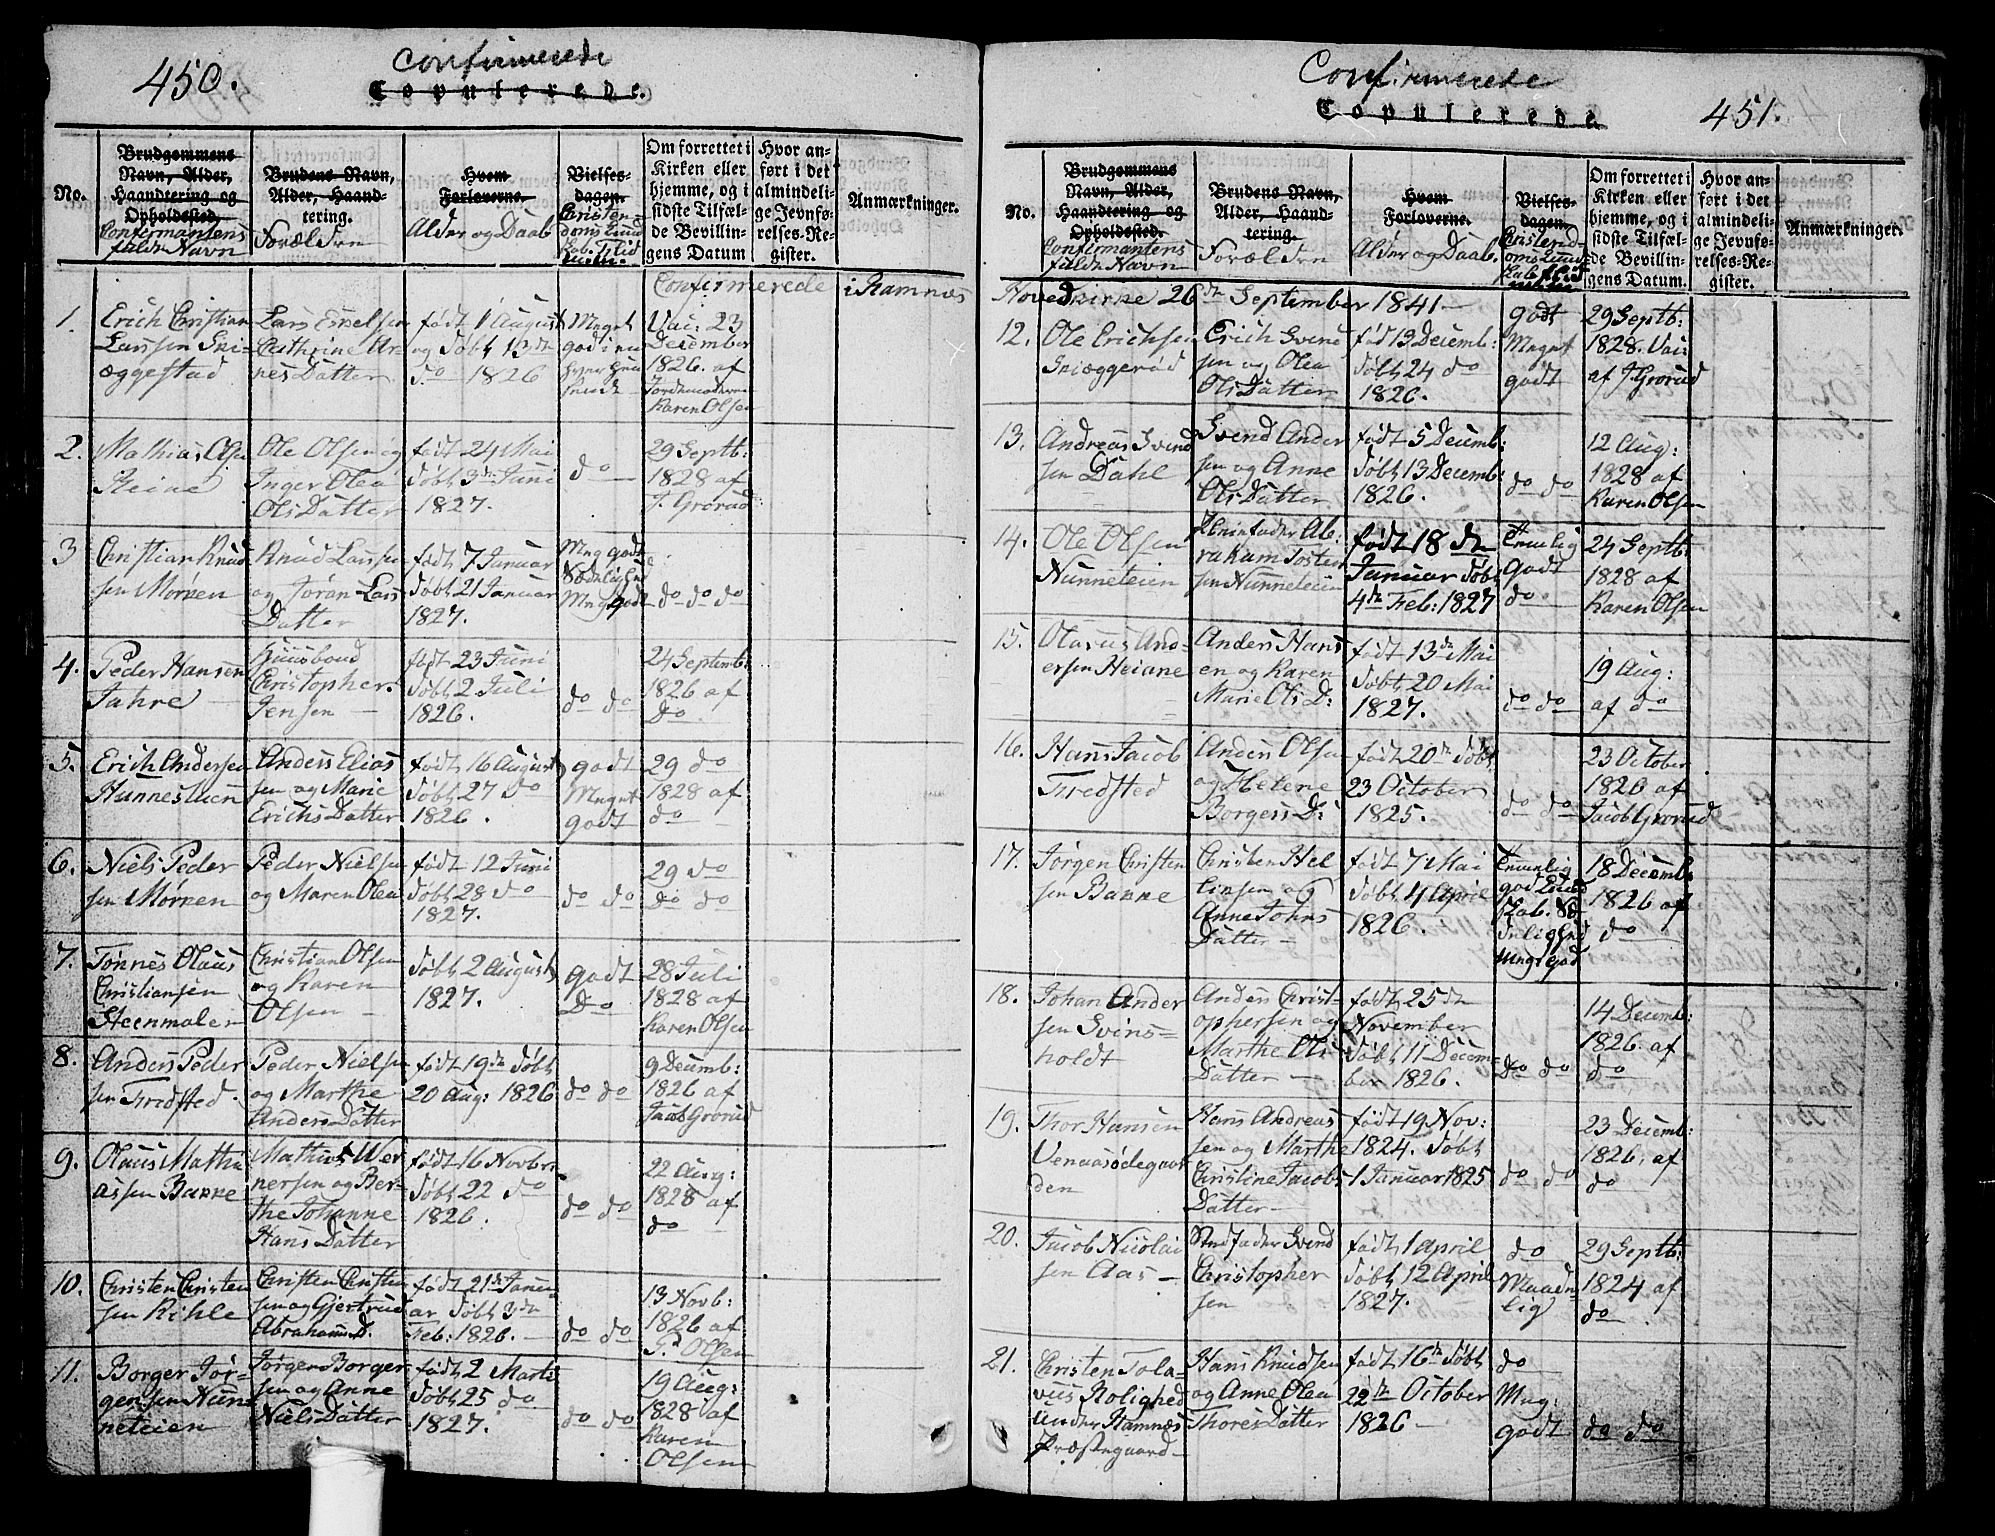 450.
Confirmerede
Copulerede.
No.
Brudgommens
Navn, Alder,
Haandtering og
Opholdssted.
Confirmantens
fulde Navn
Brudens Navn,
Alder, Haand-
tering.
Forældre
Hvem
Forloverne.
Alder og Daab
Vielses-
dagen.
Christen
doms Kund
skab. Flid
Om forrettet i
Kirken eller
hjemme, og i
sidste Tilfæl-
de Bevillin-
gens Datum
Hvor an-
ført i det
almindeli-
ge Jevnfø-
relses-Re-
gister.
Anmærkninger.
Confirmerede i Ramnæs
1.
Erich Christian
Larssen Ski-
æggestad
Lars Eskelsen
Cathrine Ar-
nes Datter
født 1 August
og døbt 13de
do 1826
Meget
god i en
Vac: 23
December
1826. af
Jordemoderen
Karen Olsen
2.
Mathias Olsen
Reine
Ole Olsen og
Inger Olea
Ols Datter
født 24 Mai
døbt 3de Juni
1827.
do
29 Septb:
1828 af
J. Grorud
3
Christian Knud
sen Mørken
Knud Larssen
og Jøran Lars
Datter
født 7 Januar
døbt 21 Januar
1827.
Meg godt
Sædelighed
Meg godt
do do do
4.
Peder Hansen
Jahre
Huusbond
Christopher
Jensen
født 23 Juni
døbt 2 Juli
1826.
do do
24 Septemb:
1826 af
Do
5.
Erich Andersen
Hunneslien
Anders Elias
sen og Marie
Erichs Datter
født 16 August
døbt 27 do
1826.
godt
Meget
godt
29 do
1828 af
do
6.
Niels Peder
sen Mørken
Peder Nielsen
og Maren Olea
født 12 Juni
døbt 28 do
1827.
do do
29 do
do do
7.
Tønnes Olaus
Christiansen
Steenmalen
Christian Olsen
og Karen
Olsen
døbt 2 August
1827.
godt
Do
28 Juli
1828 af
Karen Olsen
8.
Anders Peder
sen Fredsted
Peder Nielsen
og Marthe
Anders Datter
født 19de døbt
20 Aug: 1826
do do
9 Decemb:
1826 af
Jacob Grorud
9.
Olaus Mathi
assen Bakke
Mathias Wer
nersen og Ber-
the Johanne
Hans Datter
født 16 Novbr:
døbt 22 do
1826.
do do
22 Aug:
1828 af
do
10.
Christen Christen
sen Kihle
Christen Christen
sen og Gjertrud
Abrahams D.
født 21de Janu-
ar døbt 3de
Feb: 1826.
do do
13 Novb:
1826 af
P. Olsen
11.
Borger Jør-
gensen Nun-
neteien
Jørgen Borger
sen og Anne
Niels Datter
født 2 Marts
døbt 25 do
1827.
do do
19 Aug:
1828 af
Karen
Olsen
Confirmerede
Copulerede.
451.
No.
Brudgommens
Navn, Alder,
Haandtering og
Opholdssted.
Confirmantens
fulde Navn
Brudens Navn,
Alder, Haand-
tering.
Forældre
Hvem
Forloverne.
Alder og Daab.
Vielses-
dagen.
Christend-
oms Kund
skab Flid
Om forrettet i
Kirken eller
hjemme, og i
sidste Tilfæl-
de Bevillin-
gens Datum.
Hvor an-
ført i det
almindeli-
ge Jevnfø-
relses-Re-
gister.
Anmærkninger.
Hovedkirke 26de September 1841.
12.
Ole Erichsen
Skiæggerød
Erich Svend
sen og Olea
Ols Datter
fød 19 Decemb:
døbt 24 do
1826.
godt
Meget
godt
29 Septb:
1828. Vac:
af J. Grorud
13.
Andreas Svend
sen Dahl
Svend Ander
sen og Anne
Ols Datter
født 5 Decemb:
døbt 13 Decemb:
1826.
do do
12 Aug:
1828 af
Karen Olsen
14.
Ole Olsen
Nunneteien
Pleiefader Ab:
raham Tosten
sen Nunneteien
født 18de
Januar døbt
4de Feb: 1827
Temelig
godt
do
24 Septb:
1828 af
Karen Olsen
15.
Olavus And-
ersen Heiane
Anders Hans
en og Karen
Marie Ols D:
født 13de Mai
døbt 20 Mai
1827.
do do
19 Aug:
af do
16.
Hans Jacob
Fredsted
Anders Olsen
og Helene
Borgers D:
født 20de døbt
23 October
1825.
do do
23 October
1826 af
Jacob Grorud
17.
Jørgen Christen
sen Bakke
Christen Hel
linsen og
Anne Johns
Datter
født 7 Mai
døbt 4 April
1826.
Temelig
god Kund
skab. Sæ
delighed
Meget god
18 Decemb:
1826 af
do
18.
Johan Ander
sen Svins-
holdt
Anders Christ-
ophersen og
Marthe Ols
Datter
født 25de
November
døbt 11 Decem-
ber 1826.
Do do
14 Decemb:
1826. af
do
19.
Thor Hansen
Venaasødegaar
den
Hans Andreas
sen og Marthe
Christine Jacobs
Datter
født 19 Nov:
1824. døbt
1 Januar 1825
do do
23 Decemb:
1826, af
do
20.
Jacob Nicolai
sen Aas
Stedfader Svend
Christopher
sen
født 1 April
døbt 12 April
1827.
do
Maade-
lig
29 Septb:
1824 af
do
21.
Christen Tola-
vus Rolighed
under Ramnæs
Præstegaard
Hans Knudsen
og Anne Olea
Thores Datter
født 16de døbt
22de October
1826
do
Meg:
godt
do do